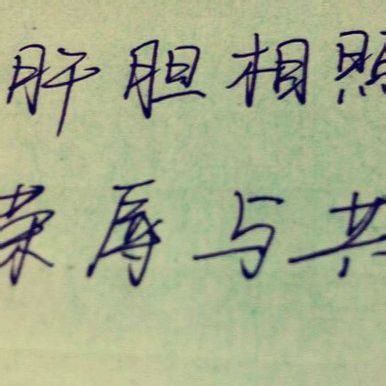 肝胆相照
荣辱与共